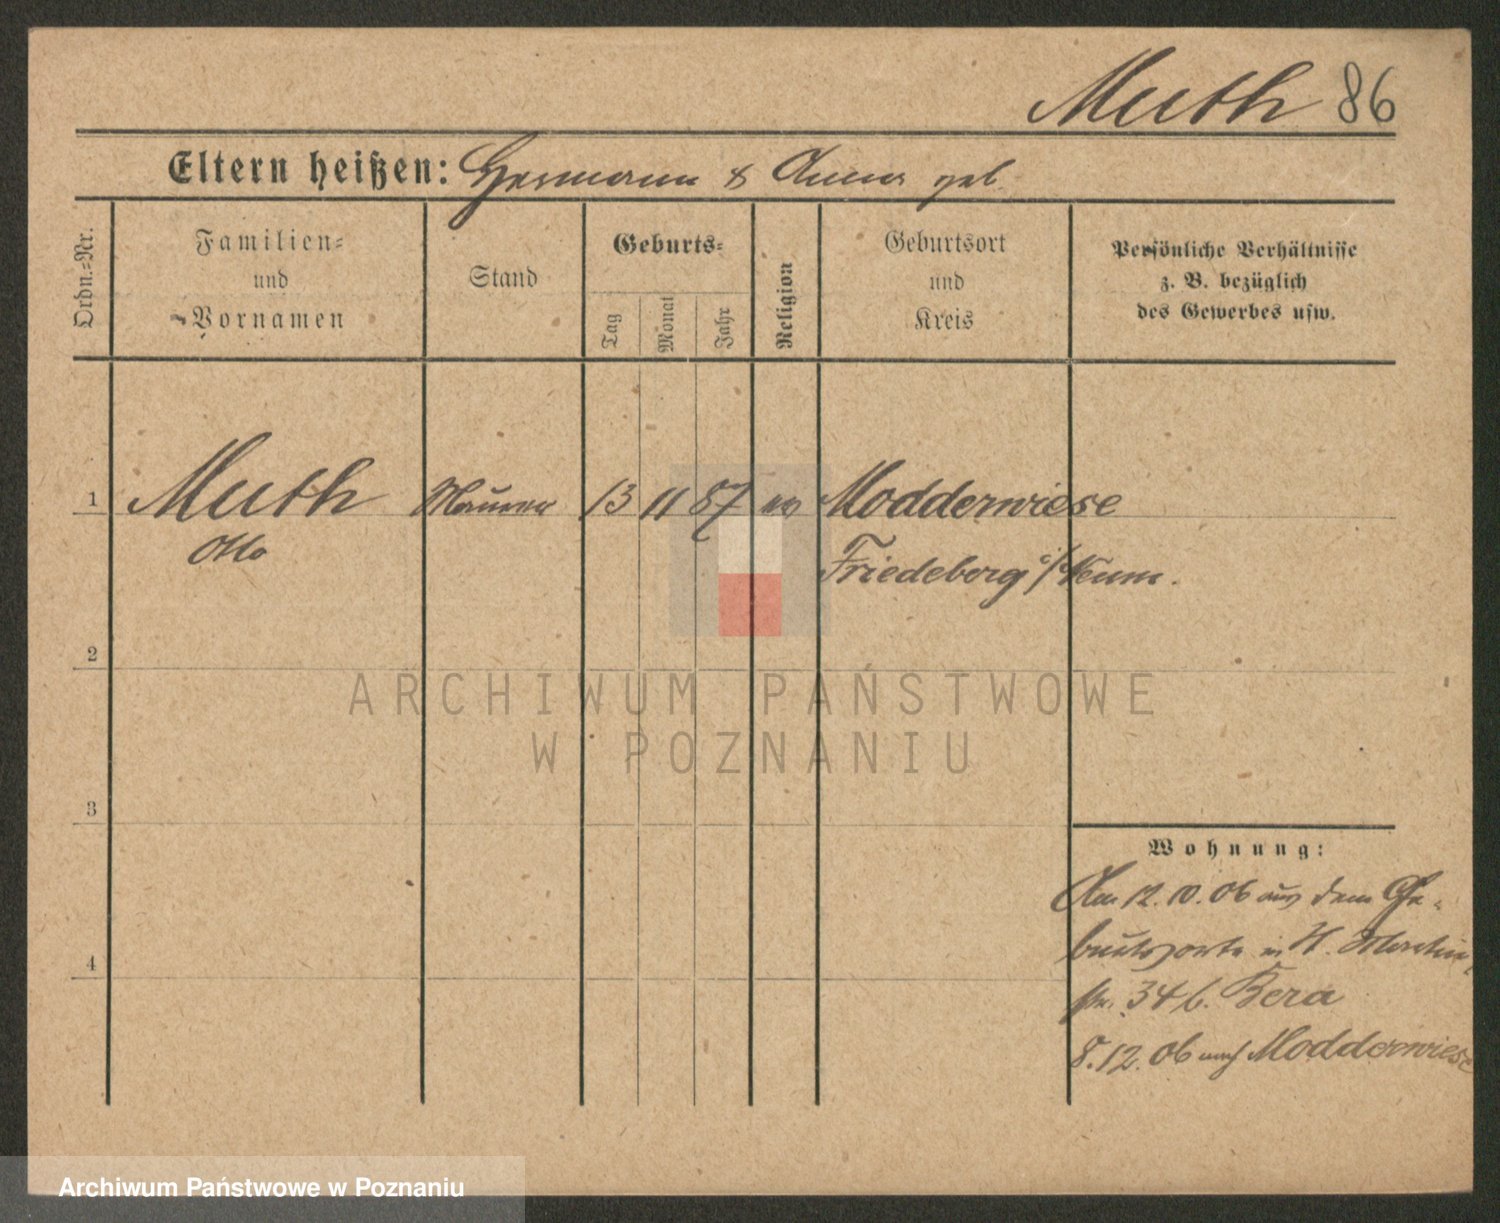 Muth 86
Eltern heißen: Hermann & Anna geb.
Ordn.=Nr.
Familien=
und
Vornamen
Stand
Geburts=
Tag
Monat
Jahr
Religion
Geburtsort
und
Kreis
Persönliche Verhältnisse
z. B. bezüglich
des Gewerbes usw.
1 Muth Maurer 13 11 87 ev Modderwiese
Otto
Friedeberg i/Neum.
2
3
4
ARCHIWUM PAŃSTWOWE
W POZNANIU
Wohnung:
Am 12.10.06 aus dem Ge=
burtsorte in H. Martin
str. 34 b. Bera
8.12.06 nach Modderwiese
Archiwum Państwowe w Poznaniu